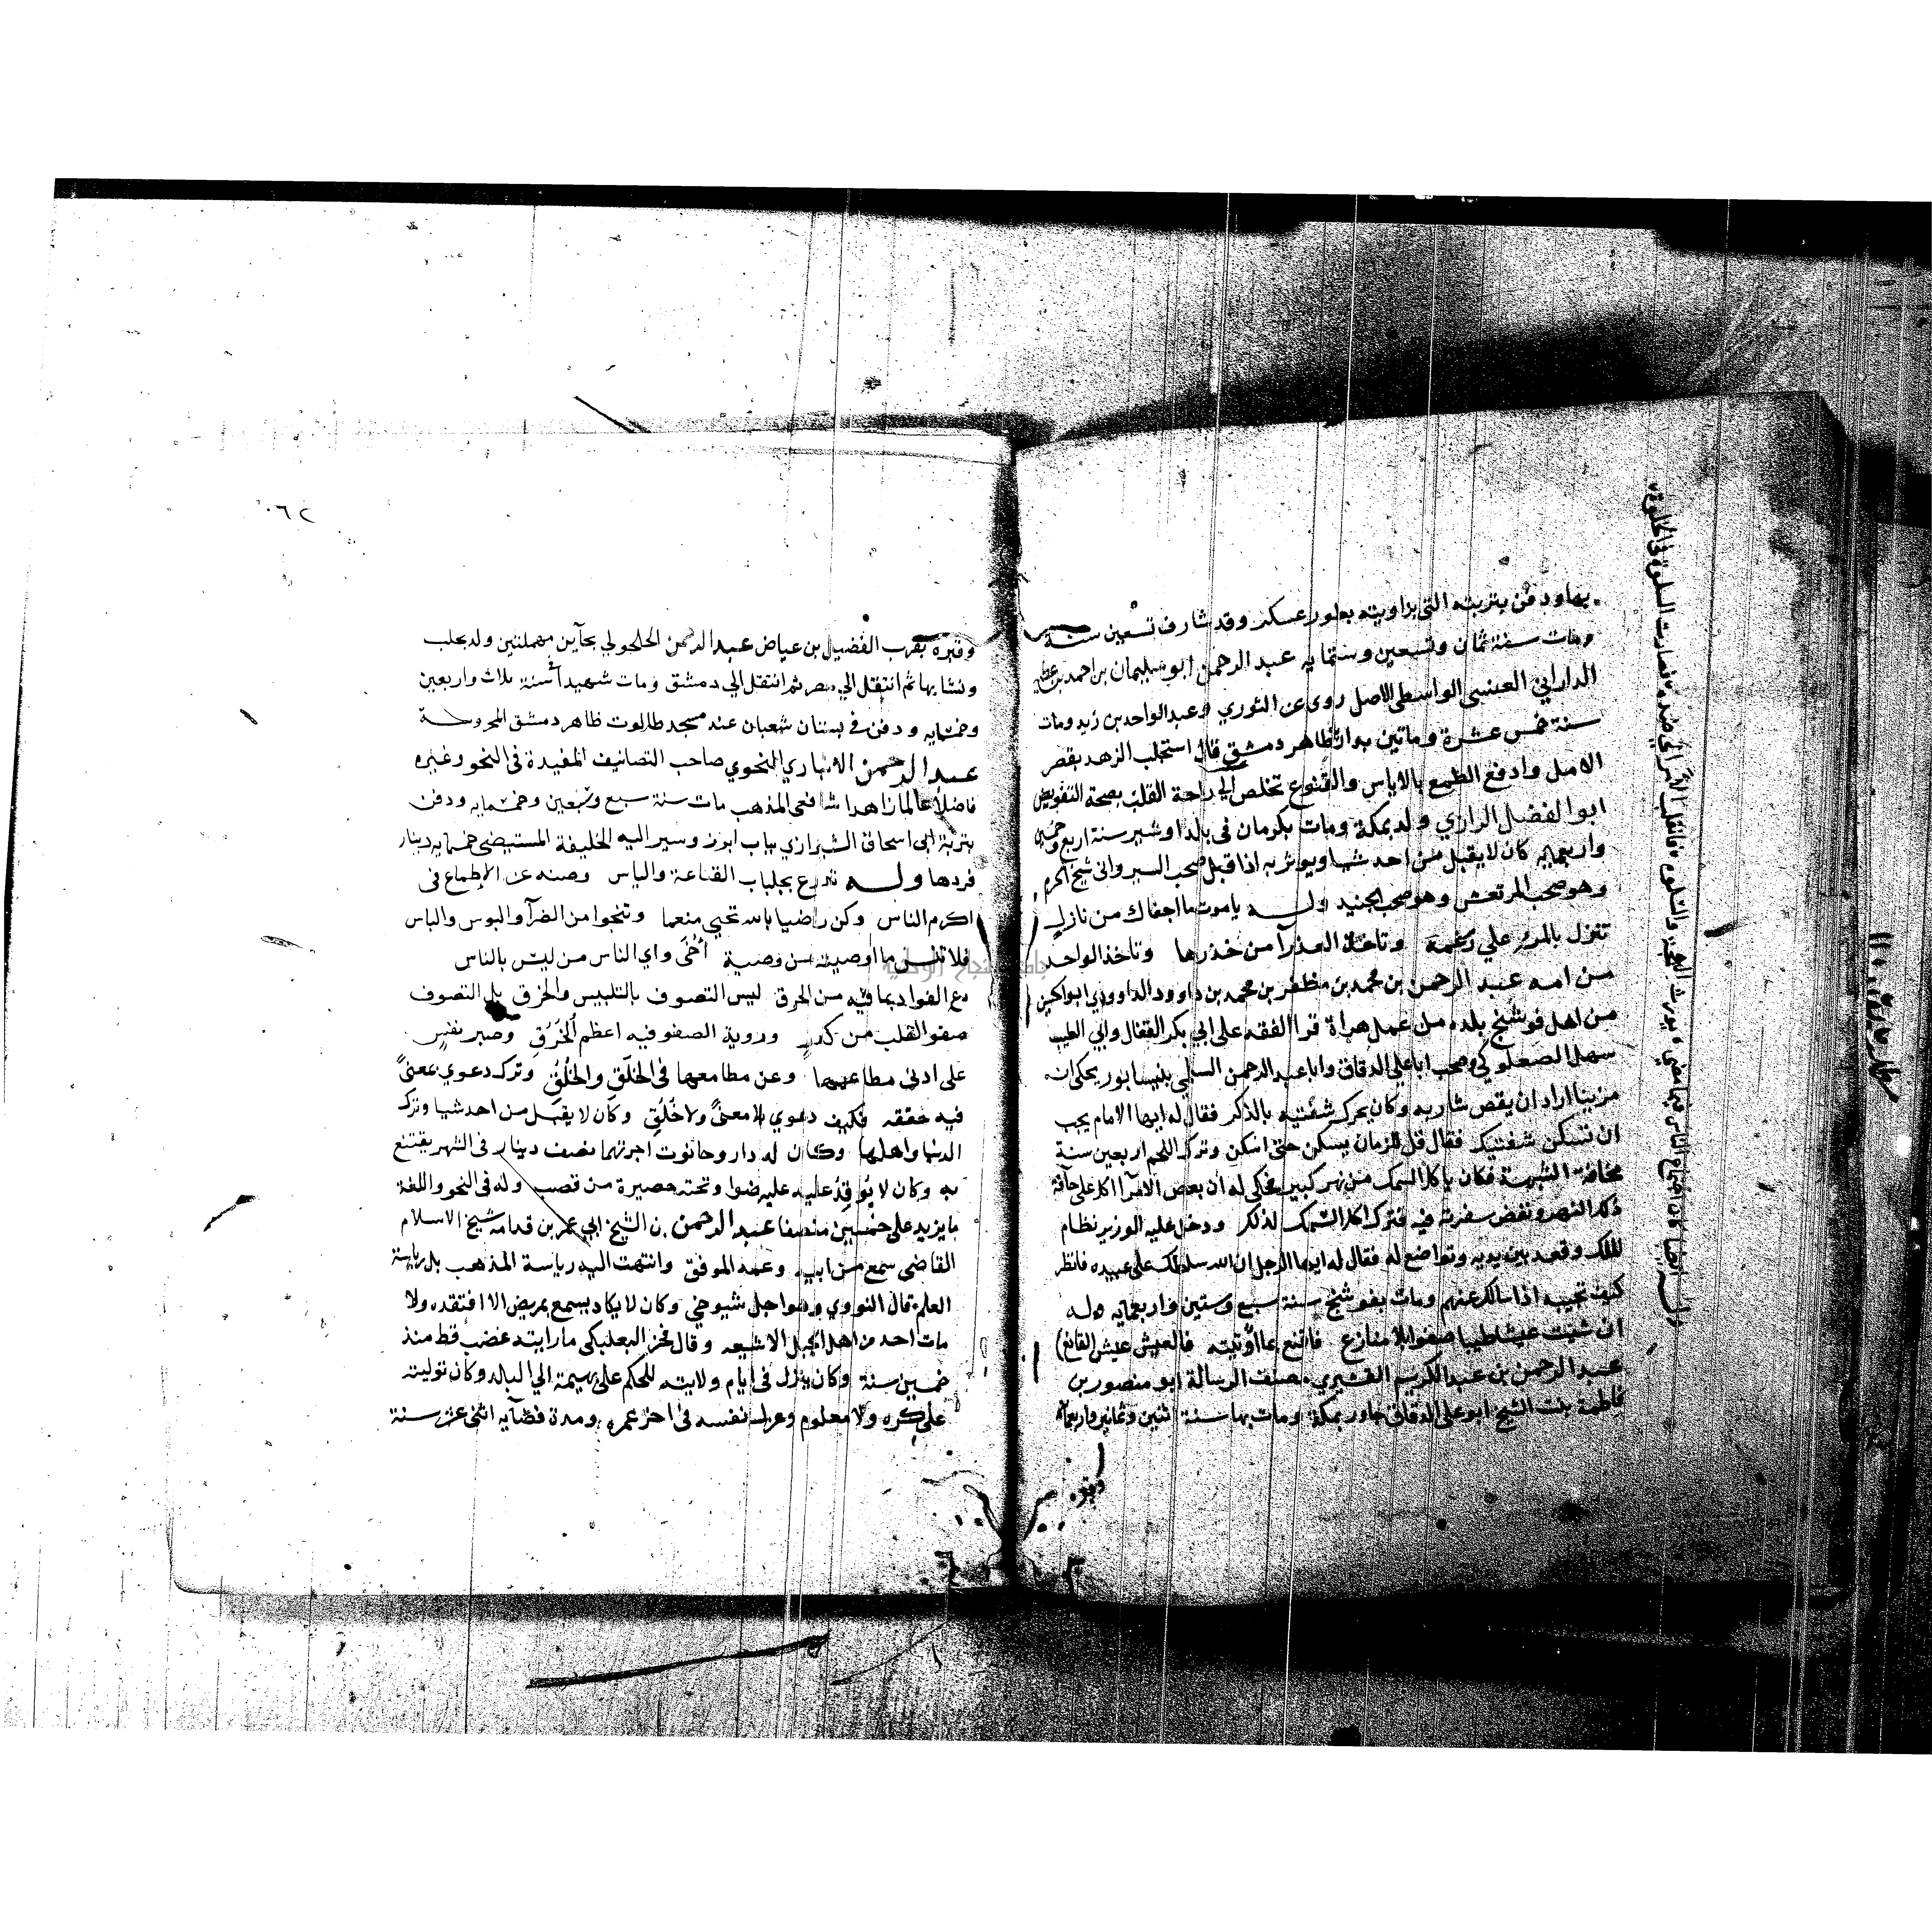 بها ودفن بتربته التى بزاويته بطور عسكر وقد شارف تسعين سنة
ومات سنة ثمان وتسعين وستمايه عبد الرحمن ابو سليمان بن احمد بن عطيه
الداراني العنسي الواسطي الاصل روى عن الثوري وعبد الواحد بن زيد ومات
سنة خمس عشرة وماتين بداريا ظاهر دمشق قال استجلب الزهد بقصر
الامل وادفع الطمع بالاياس والقنوع تخلص الي راحة القلب بصحة التفويض
ابو الفضل الرازي ولد بمكة ومات بكرمان في بلد اوشير سنة اربع وخمسين
واربعمايه كان لا يقبل من احد شيا ويوثر به اذا قبل صحب السيرواني شيخ الحرم
وهو صحب المرتعش وهو صحب الجنيد وله يا موت ما اجفاك من نازل
تنزل بالمرء علي رغمه وتاخذ العذرآ من خدرها وتاخذ الواحد
من امه عبد الرحمن بن محمد بن مظفر بن محمد بن داوود الداوودي ابو الحسين
من اهل فوشنج بلده من عمل هراة قرا الفقه على ابي بكر القفال وابي الطيب
سهل الصعلوكي وصحب ابا علي الدقاق وابا عبد الرحمن السلمي بنيسابور يحكى انه
مزينا اراد ان يقص شاربه وكان يحرك شفتيه بالذكر فقال له ايها الامام يجب
ان تسكن شفتيك فقال قل للزمان يسكن حتى اسكن وترك اللحم اربعين سنة
مخافة الشبهة فكان ياكل السمك من نهر كبير فحكي له ان بعض الامرآ اكل على حافة
ذلك النهر ونفض سفرته فيه فترك اكل السمك لذلك ودخل عليه الوزير نظام
الملك وقعد بين يديه وتواضع له فقال له ايها الرجل ان الله سلطك على عبيده فانظر
كيف تجيبه اذا سالك عنهم ومات بفوشنج سنة سبع وستين واربعمايه وله
ان شيت عيشا طيبا صفوا بلا منازع فاقنع بما اوتيته فالعيش عيش القانع
عبد الرحمن بن عبد الكريم القشيري مصنف الرسالة ابو منصور بن
فاطمة بنت الشيخ ابو على الدقاق جاور بمكة ومات بها سنة اثنين وثمانين واربعمائة
وقبره
وقبره بقرب الفضيل بن عياض عبد الرحمن الحلحولي بحآين مهملتين ولد بحلب
ونشا بها ثم انتقل الي مصر ثم انتقل الي دمشق ومات شهيدا سنة ثلاث واربعين
وخمسمايه ودفن في بستان شعبان عند مسجد طالوت ظاهر دمشق المحروسة
عبد الرحمن الانباري النحوي صاحب التصانيف المفيدة فى النحو وغيره
فاضلا عالما زاهدا شافعى المذهب مات سنة سبع وسبعين وخمسمايه ودفن
بتربة ابى اسحاق الشيرازي بباب ابرز وسير اليه الخليفة المستيضى خمسمايه دينار
فردها وله تدرع بجلباب القناعة والياس وصنه عن الاطماع فى
اكرم الناس وكن راضيا بالله تحيى منعما وتنجوا من الضرآ والبوس والباس
فلا تنس ما اوصيته من وصية أخي واي الناس من ليس بالناس
دع الفواد بما فيه من الحرق ليس التصوف بالتلبيس والخرق بل التصوف
صفو القلب من كدر وروية الصفو فيه اعظم الخرق وصبر نفس
على ادنى مطاعمها وعن مطامعها فى الخلق والخلق وترك دعوي بمعنى
فيه حققه فكيف دعوي بلا معنى ولا خلق وكان لا يقبل من احد شيا وترك
الدنيا واهلها وكان له دار وحانوت اجرتهما نصف دينار فى الشهر يقتنع
به وكان لا يوقد عليه ضوا وتحته حصيرة من قصب وله فى النحو واللغة
ما يزيد على خمسين مصنفا عبد الرحمن بن الشيخ ابي عمر بن قدامه شيخ الاسلام
القاضى سمع من ابيه وعمه الموفق وانتهت اليه رياسة المذهب بل رياسة
العلم قال النووي وهو اجل شيوخي وكان لا يكاد يسمع بمريض الا افتقده ولا
مات احد من اهل الجبل الا شيعه وقال فخر البعلبكى ما رايته غضب قط منذ
خمسين سنة وكان ينزل فى ايام ولايته للحكم على بهيمة الي البلد وكان توليته
على كره ولا معلوم وعزل نفسه فى اخر عمره ومدة قضآيه اثنى عشر سنة